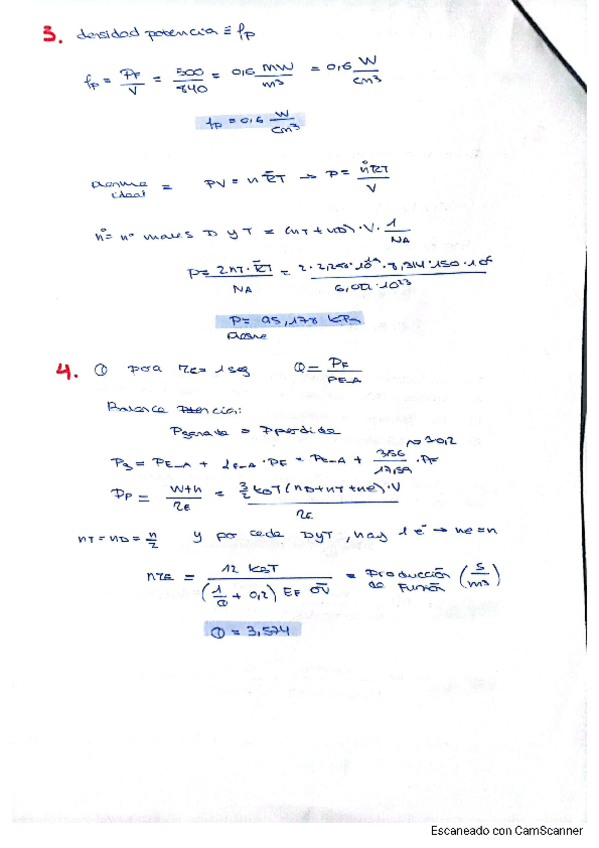 3. densidad potencia ≡ fp
fp = PF/V = 500/840 = 0,6 MW/m3 = 0,6 W/cm3
fp = 0,6 W/cm3
Plasma ideal = PV = n R̄T → P = n° R̄T/V
n° = n° moles D y T = (nT + nD) · V · 1/NA
P = 2nT · R̄T/NA = 8,314 · 150 · 10⁶ / 6,022 · 10²³
P = 95,178 kPa
4. para = 1 seg Q = PF/PE_A
Balance Potencia:
Pgenerada = Pperdida
≈ 0,2
Pg = PE_A + · PF = PE_A + 3,56/17,59 · PF
Pp = W+h/τE = 3/2 kBT (nD + nT + ne) · V / τE
nT = nD = n/2 y por cada DyT, hay 1 e⁻ → ne = n
nτE = 12 kBT / (1/Q + 0,2) EF σ̄v̄ = Producción de Fusión (s/m3)
Q = 3,574
Escaneado con CamScanner